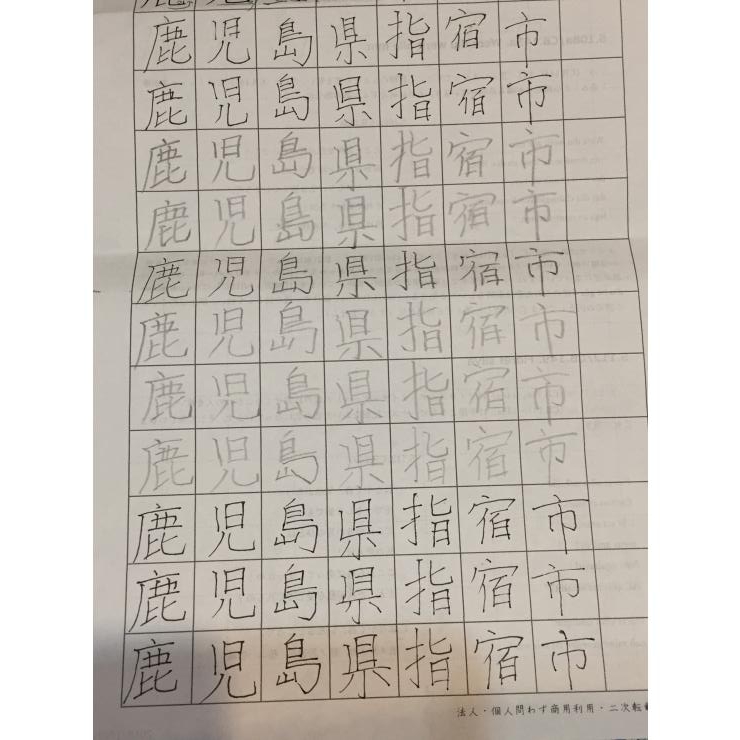 鹿児島県指宿市
鹿児島県指宿市
鹿児島県指宿市
鹿児島県指宿市
鹿児島県指宿市
鹿児島県指宿市
鹿児島県指宿市
鹿児島県指宿市
鹿児島県指宿市
鹿児島県指宿市
鹿児島県指宿市
法人・個人問わず商用利用・二次転載